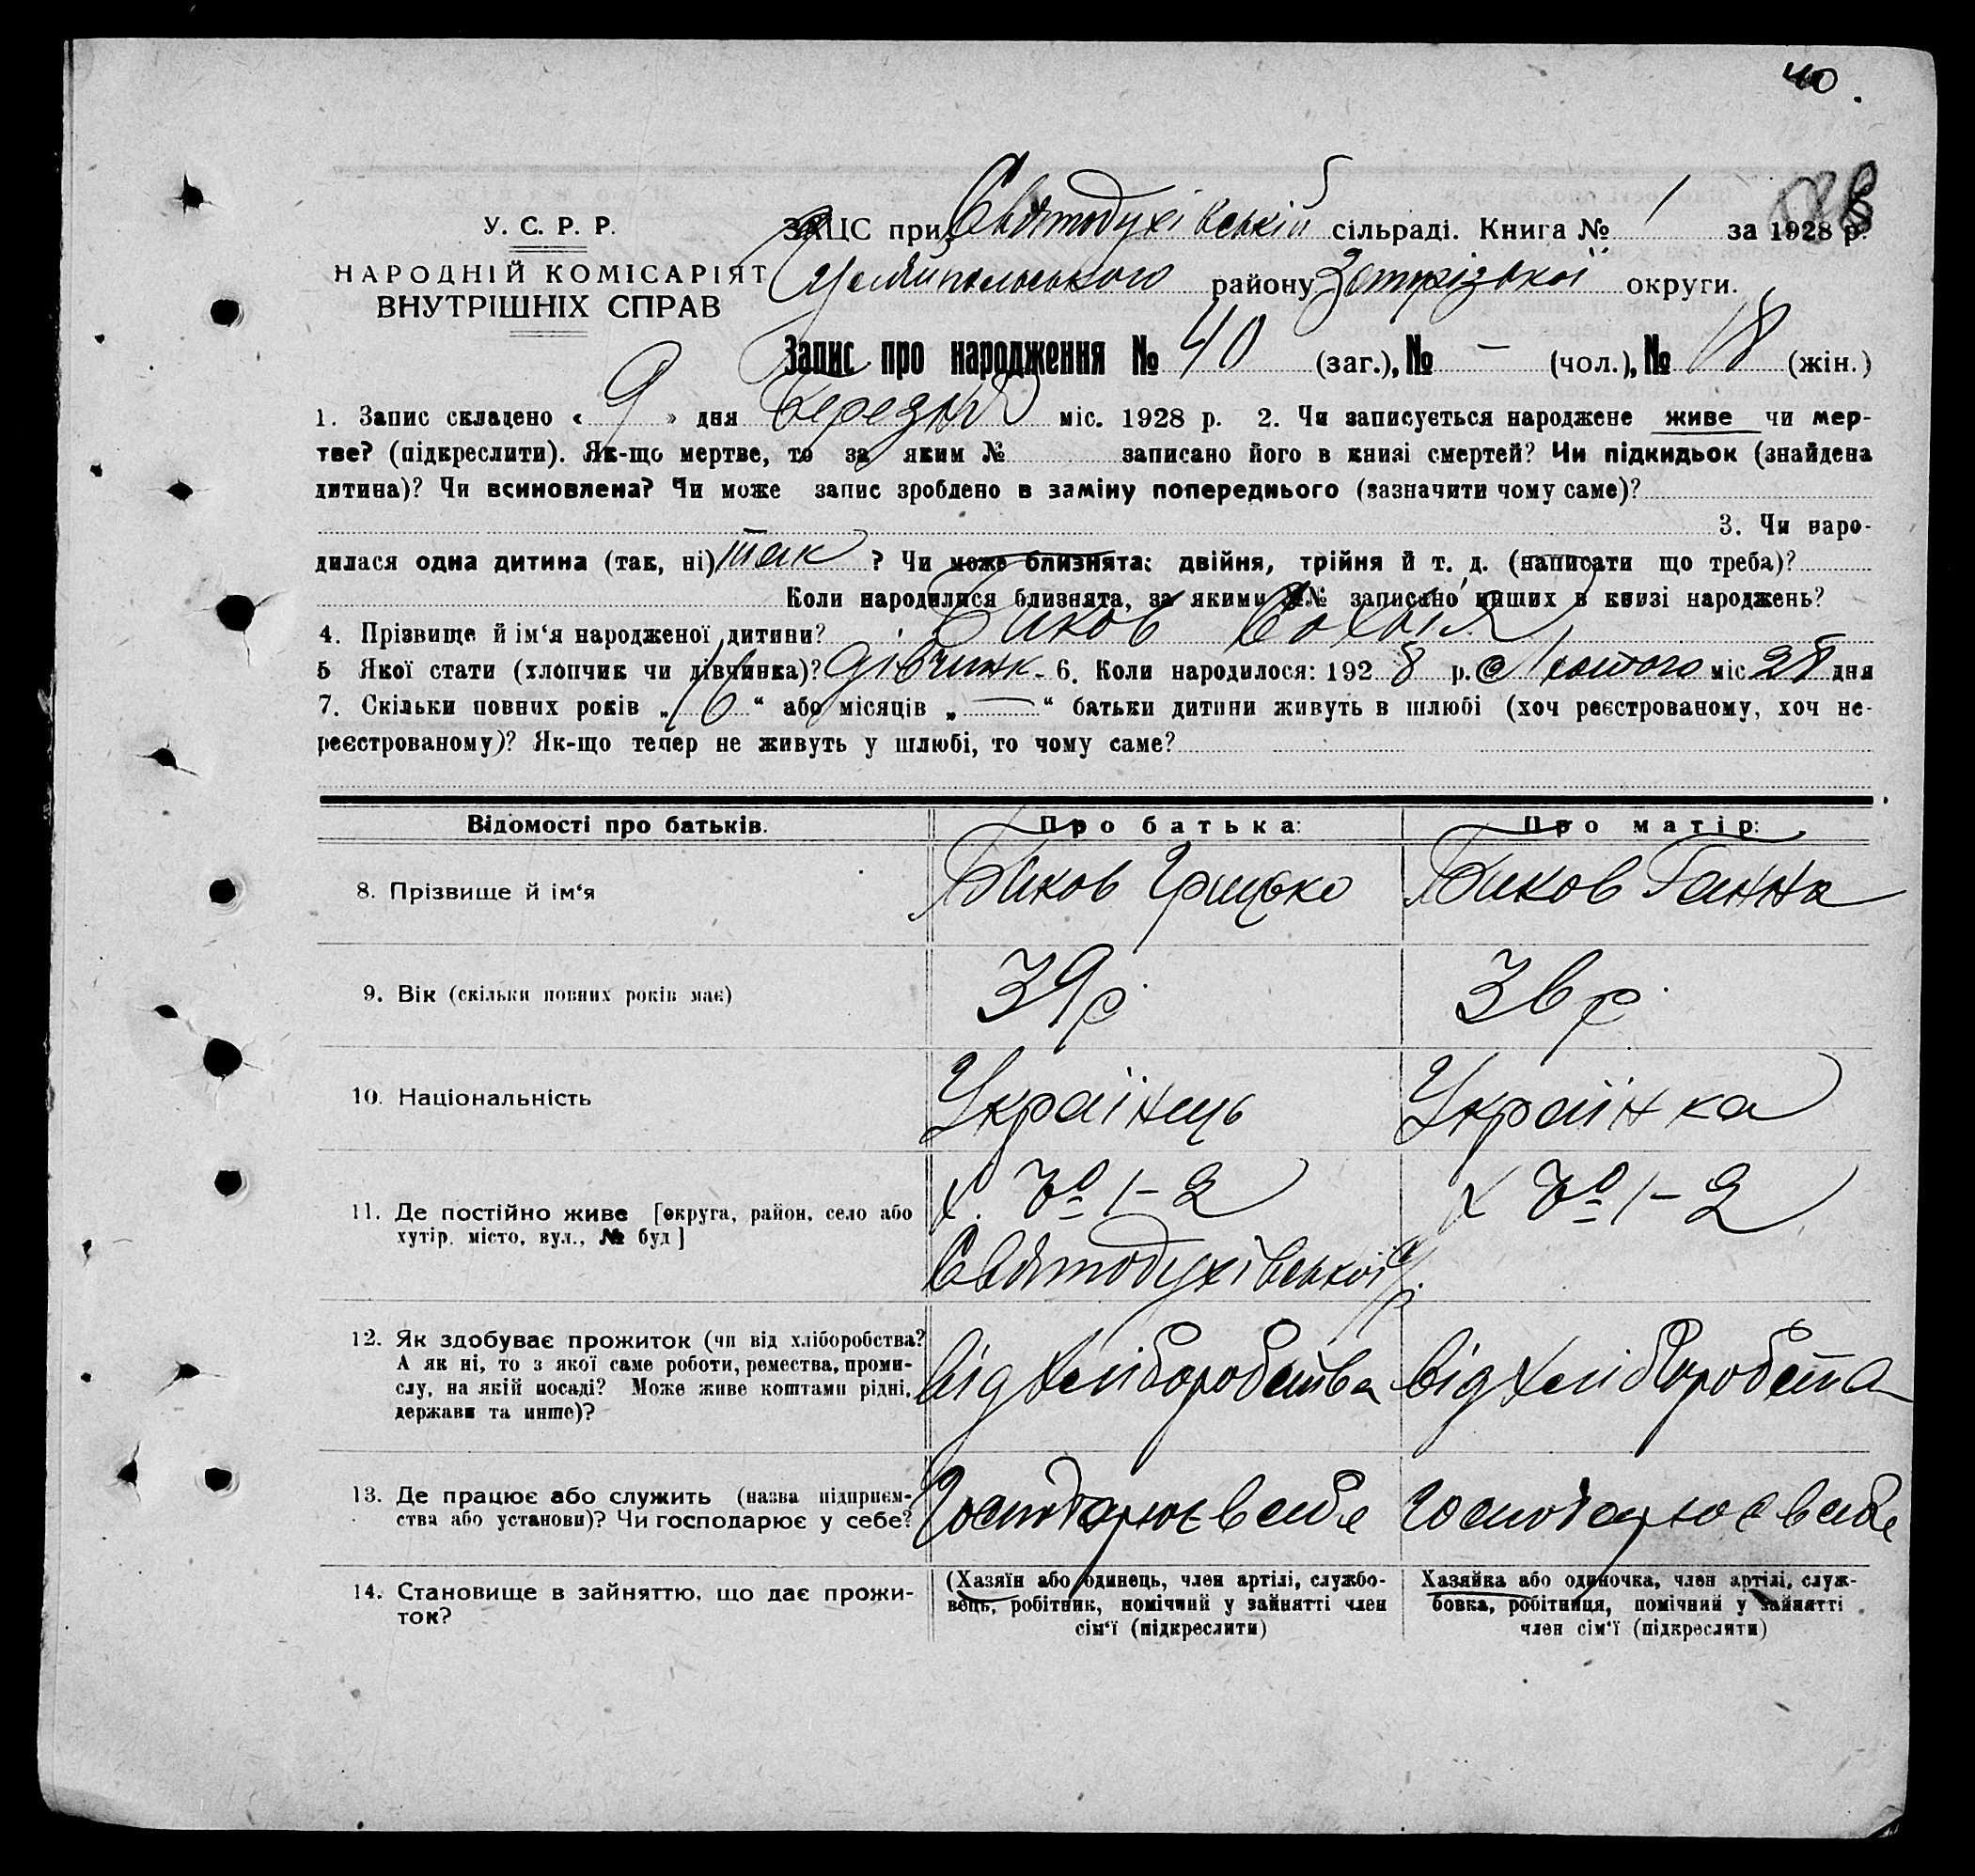 40.
У. С. Р. Р.
НАРОДНІЙ КОМІСАРІЯТ
ВНУТРІШНІХ СПРАВ
ЗАЦС при Святодухівській сільраді. Книга № 1 за 1928 р.
району округи.
Запис про народження № 40 (заг.), № — (чол.), № 18 (жін.)
1. Запис складено « 9 » дня Березня міс. 1928 р. 2. Чи записується народжене живе чи мер-
тве? (підкреслити). Як-що мертве, то за яким № записано його в книзі смертей? Чи підкидьок (знайдена
дитина)? Чи всиновлена? Чи може запис зроблено в заміну попереднього (зазначити чому саме)?
3. Чи наро-
дилася одна дитина (так, ні) так ? Чи може близнята: двійня, трійня й т. д. (написати що треба)?
Коли народилися близнята, за якими №№ записано инших в книзі народжень?
4. Прізвище й ім‘я народженої дитини? Биков
5 Якої стати (хлопчик чи дівчинка)? дівчинк. 6. Коли народилося: 1928 р. Лютого міс 28 дня
7. Скільки повних років „ 16 “ або місяців „ — “ батьки дитини живуть в шлюбі (хоч реєстрованому, хоч не-
реєстрованому)? Як-що тепер не живуть у шлюбі, то чому саме?
Відомості про батьків. Про батька: Про матір:
8. Прізвище й ім‘я Биков Грицько Биков Ганна
9. Вік (скільки повних років має) 39 р. 36 р.
10. Національність Українець Українка
11. Де постійно живе [округа, район, село або
хутір, місто, вул., № буд] х. № 1-2 х № 1-2
Святодухівської с/р.
12. Як здобуває прожиток (чи від хліборобства?
А як ні, то з якої саме роботи, ремества, проми-
слу, на якій посаді? Може живе коштами рідні,
держави та инше)? від хліборобства від хліборобства
13. Де працює або служить (назва підприєм-
ства або установи)? Чи господарює у себе? Господарює в себе Господарює в себе
14. Становище в зайняттю, що дає прожи-
ток?
(Хазяїн або одинець, член артілі, службо-
вець, робітник, помічний у зайнятті член
сім‘ї (підкреслити)
Хазяйка або одиночка, член артілі, служ-
бовка, робітниця, помічний у зайнятті
член сім‘ї (підкреслити)